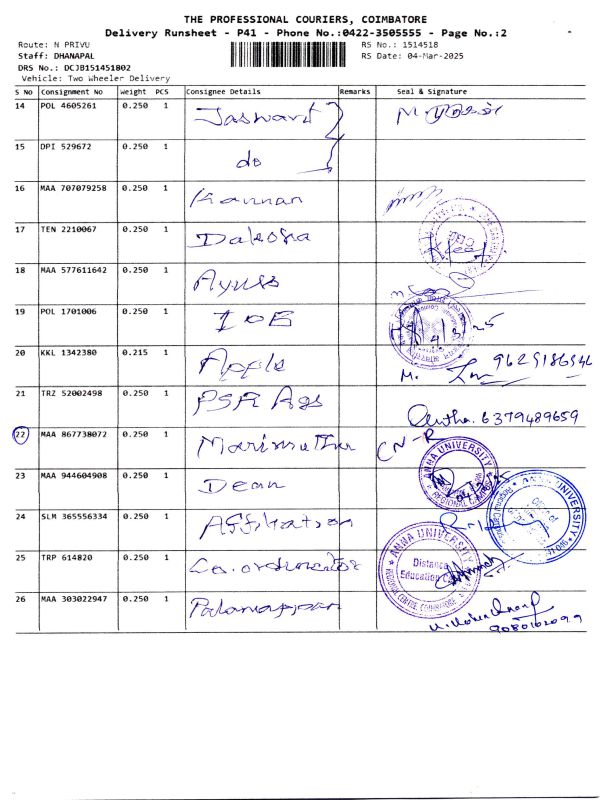 THE PROFESSIONAL COURIERS, COIMBATORE
Delivery Runsheet - P41 - Phone No.:0422-3505555 - Page No.:2
Route: N PRIVU
RS No.: 1514518
Staff: DHANAPAL
RS Date: 04-Mar-2025
DRS No.: DCJB151451802
Vehicle: Two Wheeler Delivery
S No Consignment No Weight PCS Consignee Details Remarks Seal & Signature
14 POL 4605261 0.250 1
15 DPI 529672 0.250 1 do
16 MAA 707079258 0.250 1 Kannan
17 TEN 2210067 0.250 1
18 MAA 577611642 0.250 1
19 POL 1701006 0.250 1 IOB
20 KKL 1342380 0.215 1 Apple
M.
21 TRZ 52002498 0.250 1 PSR Ags
6379489659
22 MAA 867738072 0.250 1 Marimuthu CN-R
ANNA UNIVERSITY
23 MAA 944604908 0.250 1 Dean
24 SLM 365556334 0.250 1 Affiliation
25 TRP 614820 0.250 1 Co.ordinator
ANNA UNIVERSITY
Distance
Education
26 MAA 303022947 0.250 1 Palaniappan